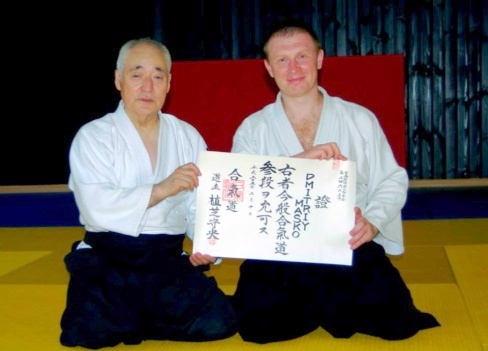 證
DMITRIY
MASKO
右者今般合氣道
參段ヲ允可ス
合氣道
道主 植芝守央